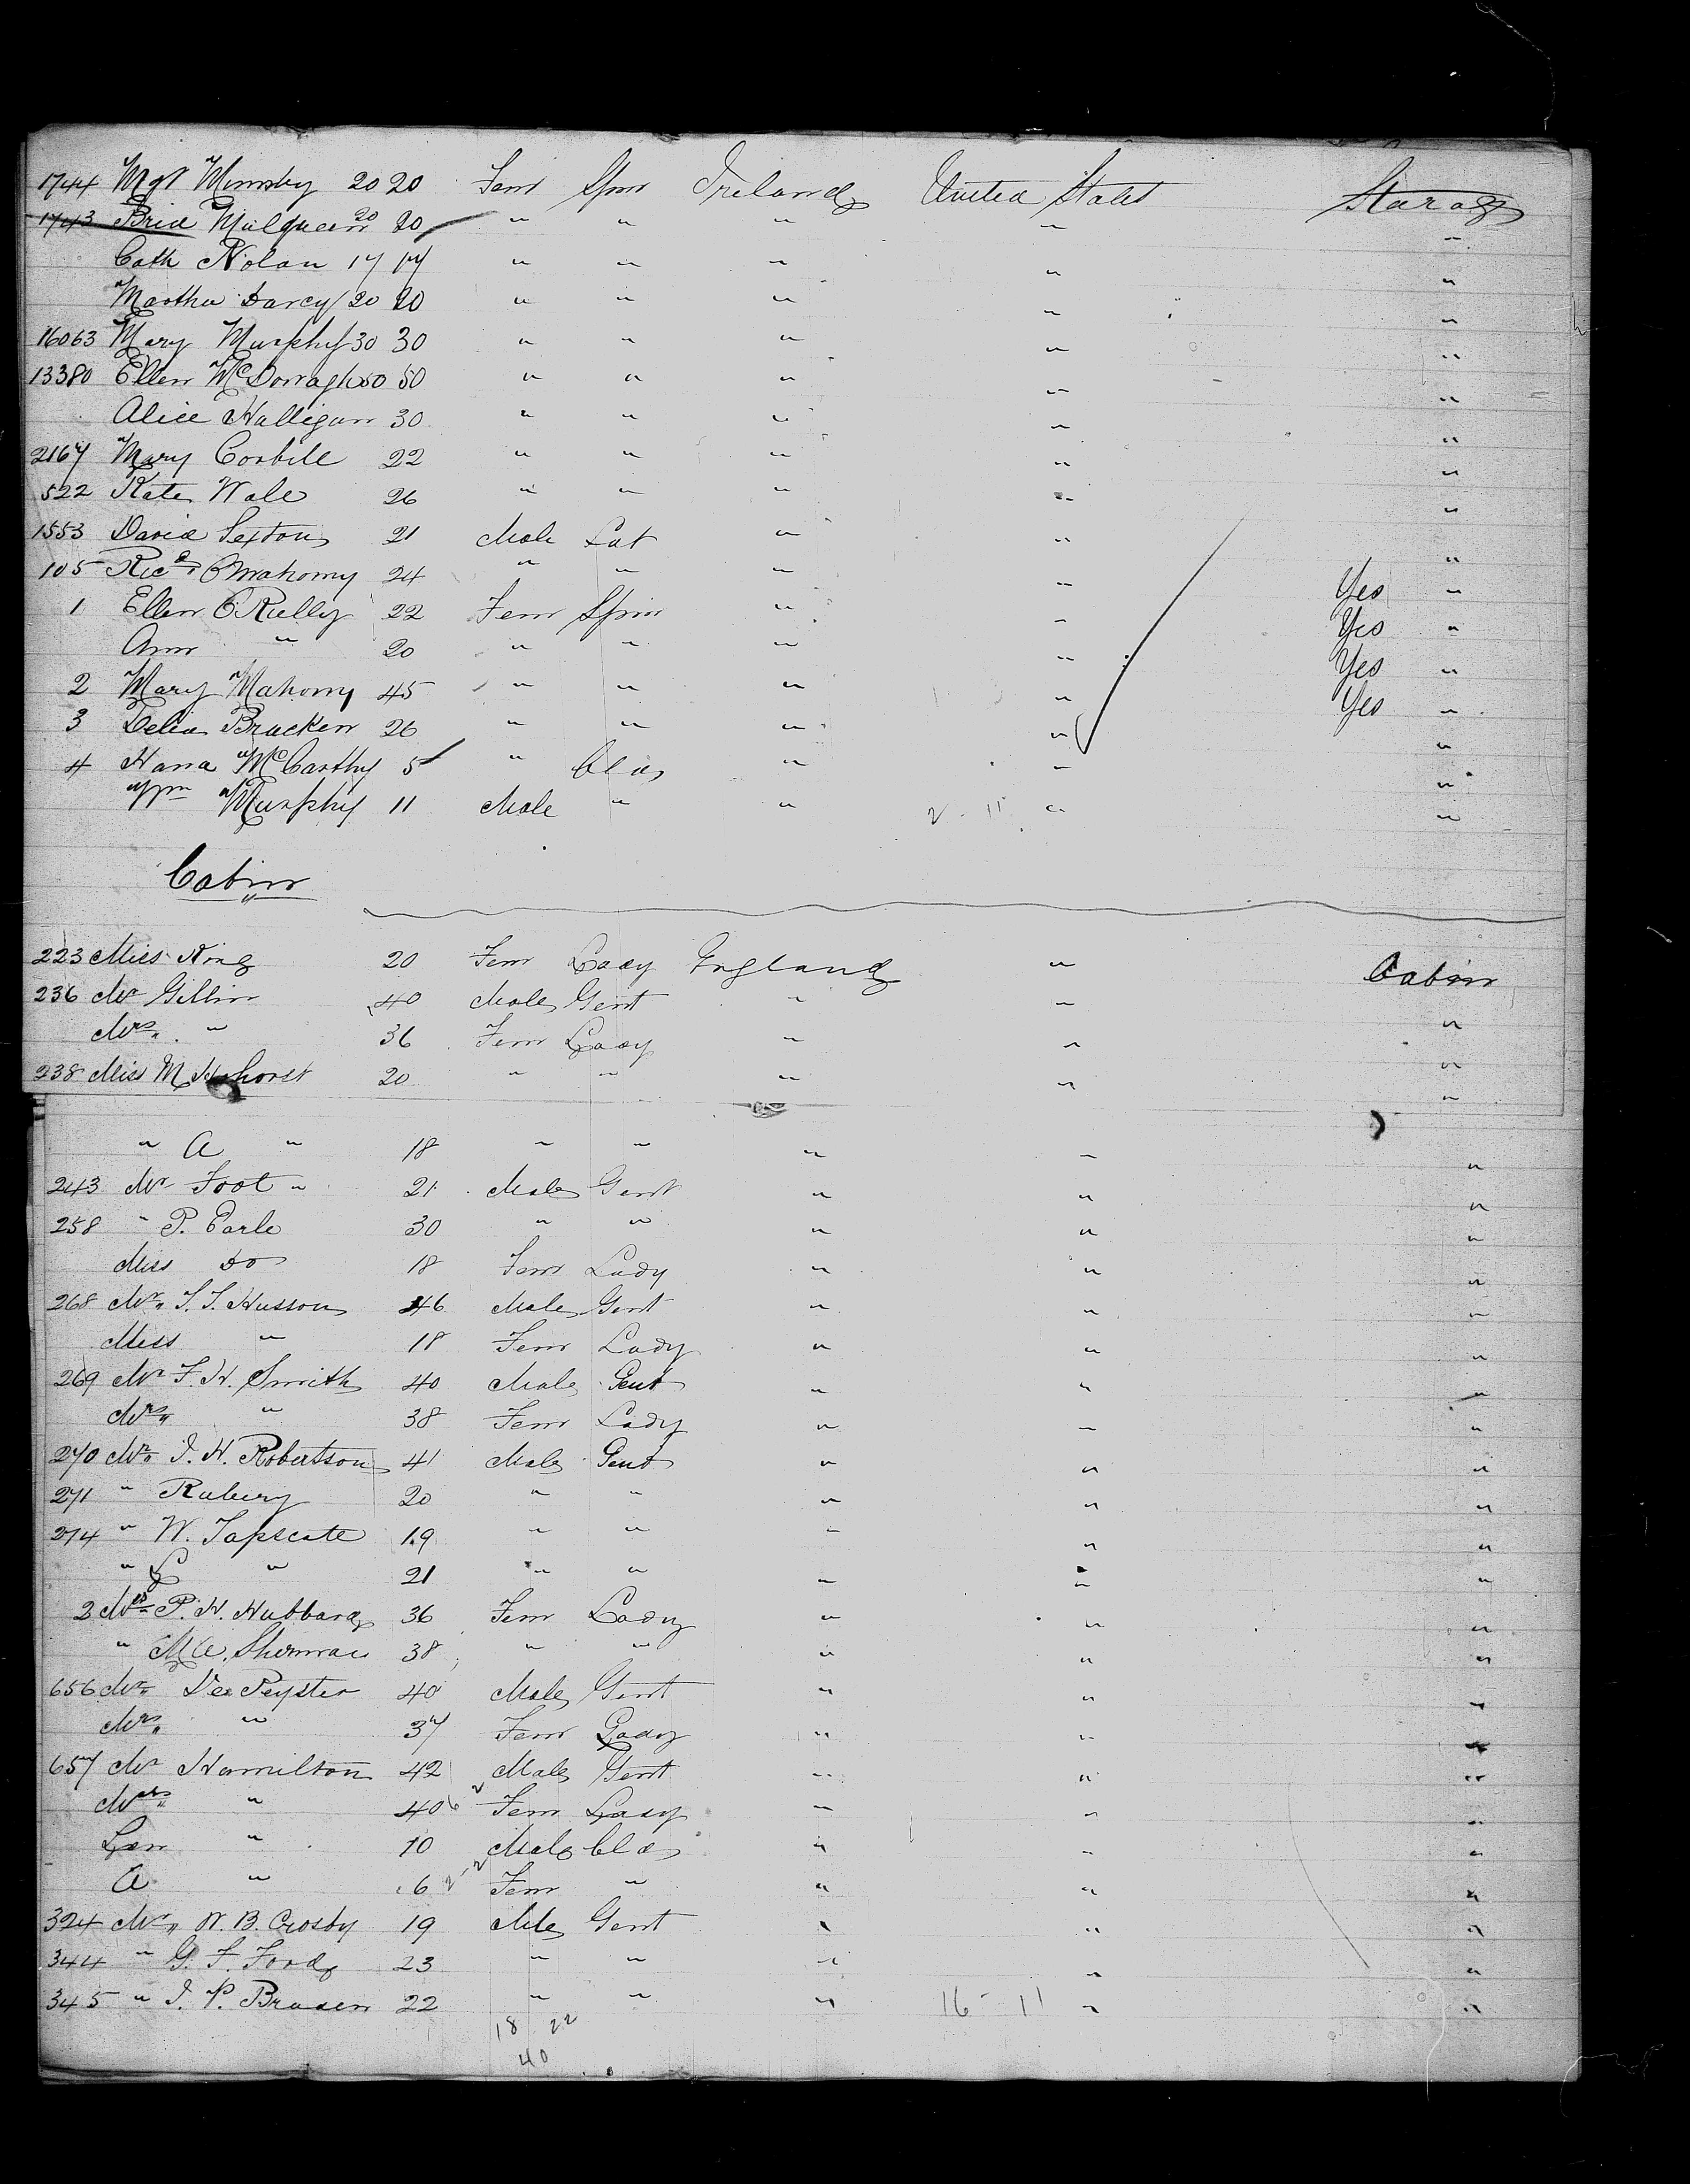 1744 Mgt Mimsby 20 20 Fem Spin Ireland United States Starage
1743 Brid Mulqueen 20 20 " " " " "
Cath Nolan 17 17 " " " " "
Martha Darcy 20 20 " " " " "
16063 Mary Murphy 30 30 " " " " "
13380 Ellen McDonagh 50 50 " " " " "
Alice Halligan 30 " " " " "
2167 Mary Corbile 22 " " " " "
522 Kate Wale 26 " " " " "
1553 David Sexton 21 Male Lab " " "
105 Ricd OMahony 24 " " " " Yes "
1 Ellen OReilly 22 Fem Spin " " Yes "
Ann " 20 " " " " Yes "
2 Mary Mahony 45 " " " " Yes "
3 Delia Bracken 26 " " " " "
4 Hana McCarthy 5 " Cld " " "
Wm Murphy 11 Male " " 2 - 11 " "
Cabin
223 Miss King 20 Fem Lady England " Cabin
236 Mr Gillin 40 Male Gent " " "
Mrs " 36 Fem Lady " " "
238 Miss M 20 " " " " "
" A " 18 " " " " "
243 Mr Foot " 21 Male Gent " " "
258 " P. Earle 30 " " " " "
Miss Do 18 Fem Lady " " "
268 Mr. Husson 46 Male Gent " " "
Miss " 18 Fem Lady " " "
269 Mr F. H. Smith 40 Male Gent " " "
Mrs " 38 Fem Lady " " "
270 Mr J. H. Robertson 41 Male Gent " " "
271 " Rubery 20 " " " " "
274 " W. Tapscate 19 " " " " "
" " 21 " " " " "
2 Mrs P. H. Hubbard 36 Fem Lady " " "
" M A. Sherman 38 " " " " "
656 Mr De Peyster 40 Male Gent " " "
Mrs " 37 Fem Lady " " "
657 Mr Hamilton 42 Male Gent " " "
Mrs " 40 Fem Lady " " "
" 10 Male Cld " " "
A " 6 Fem " " " "
324 Mr W. B. Crosby 19 Mle Gent " " "
344 " G. F. Ford 23 " " " " "
345 " J. P. 22 " " " 16 - 11 " "
18 22
40